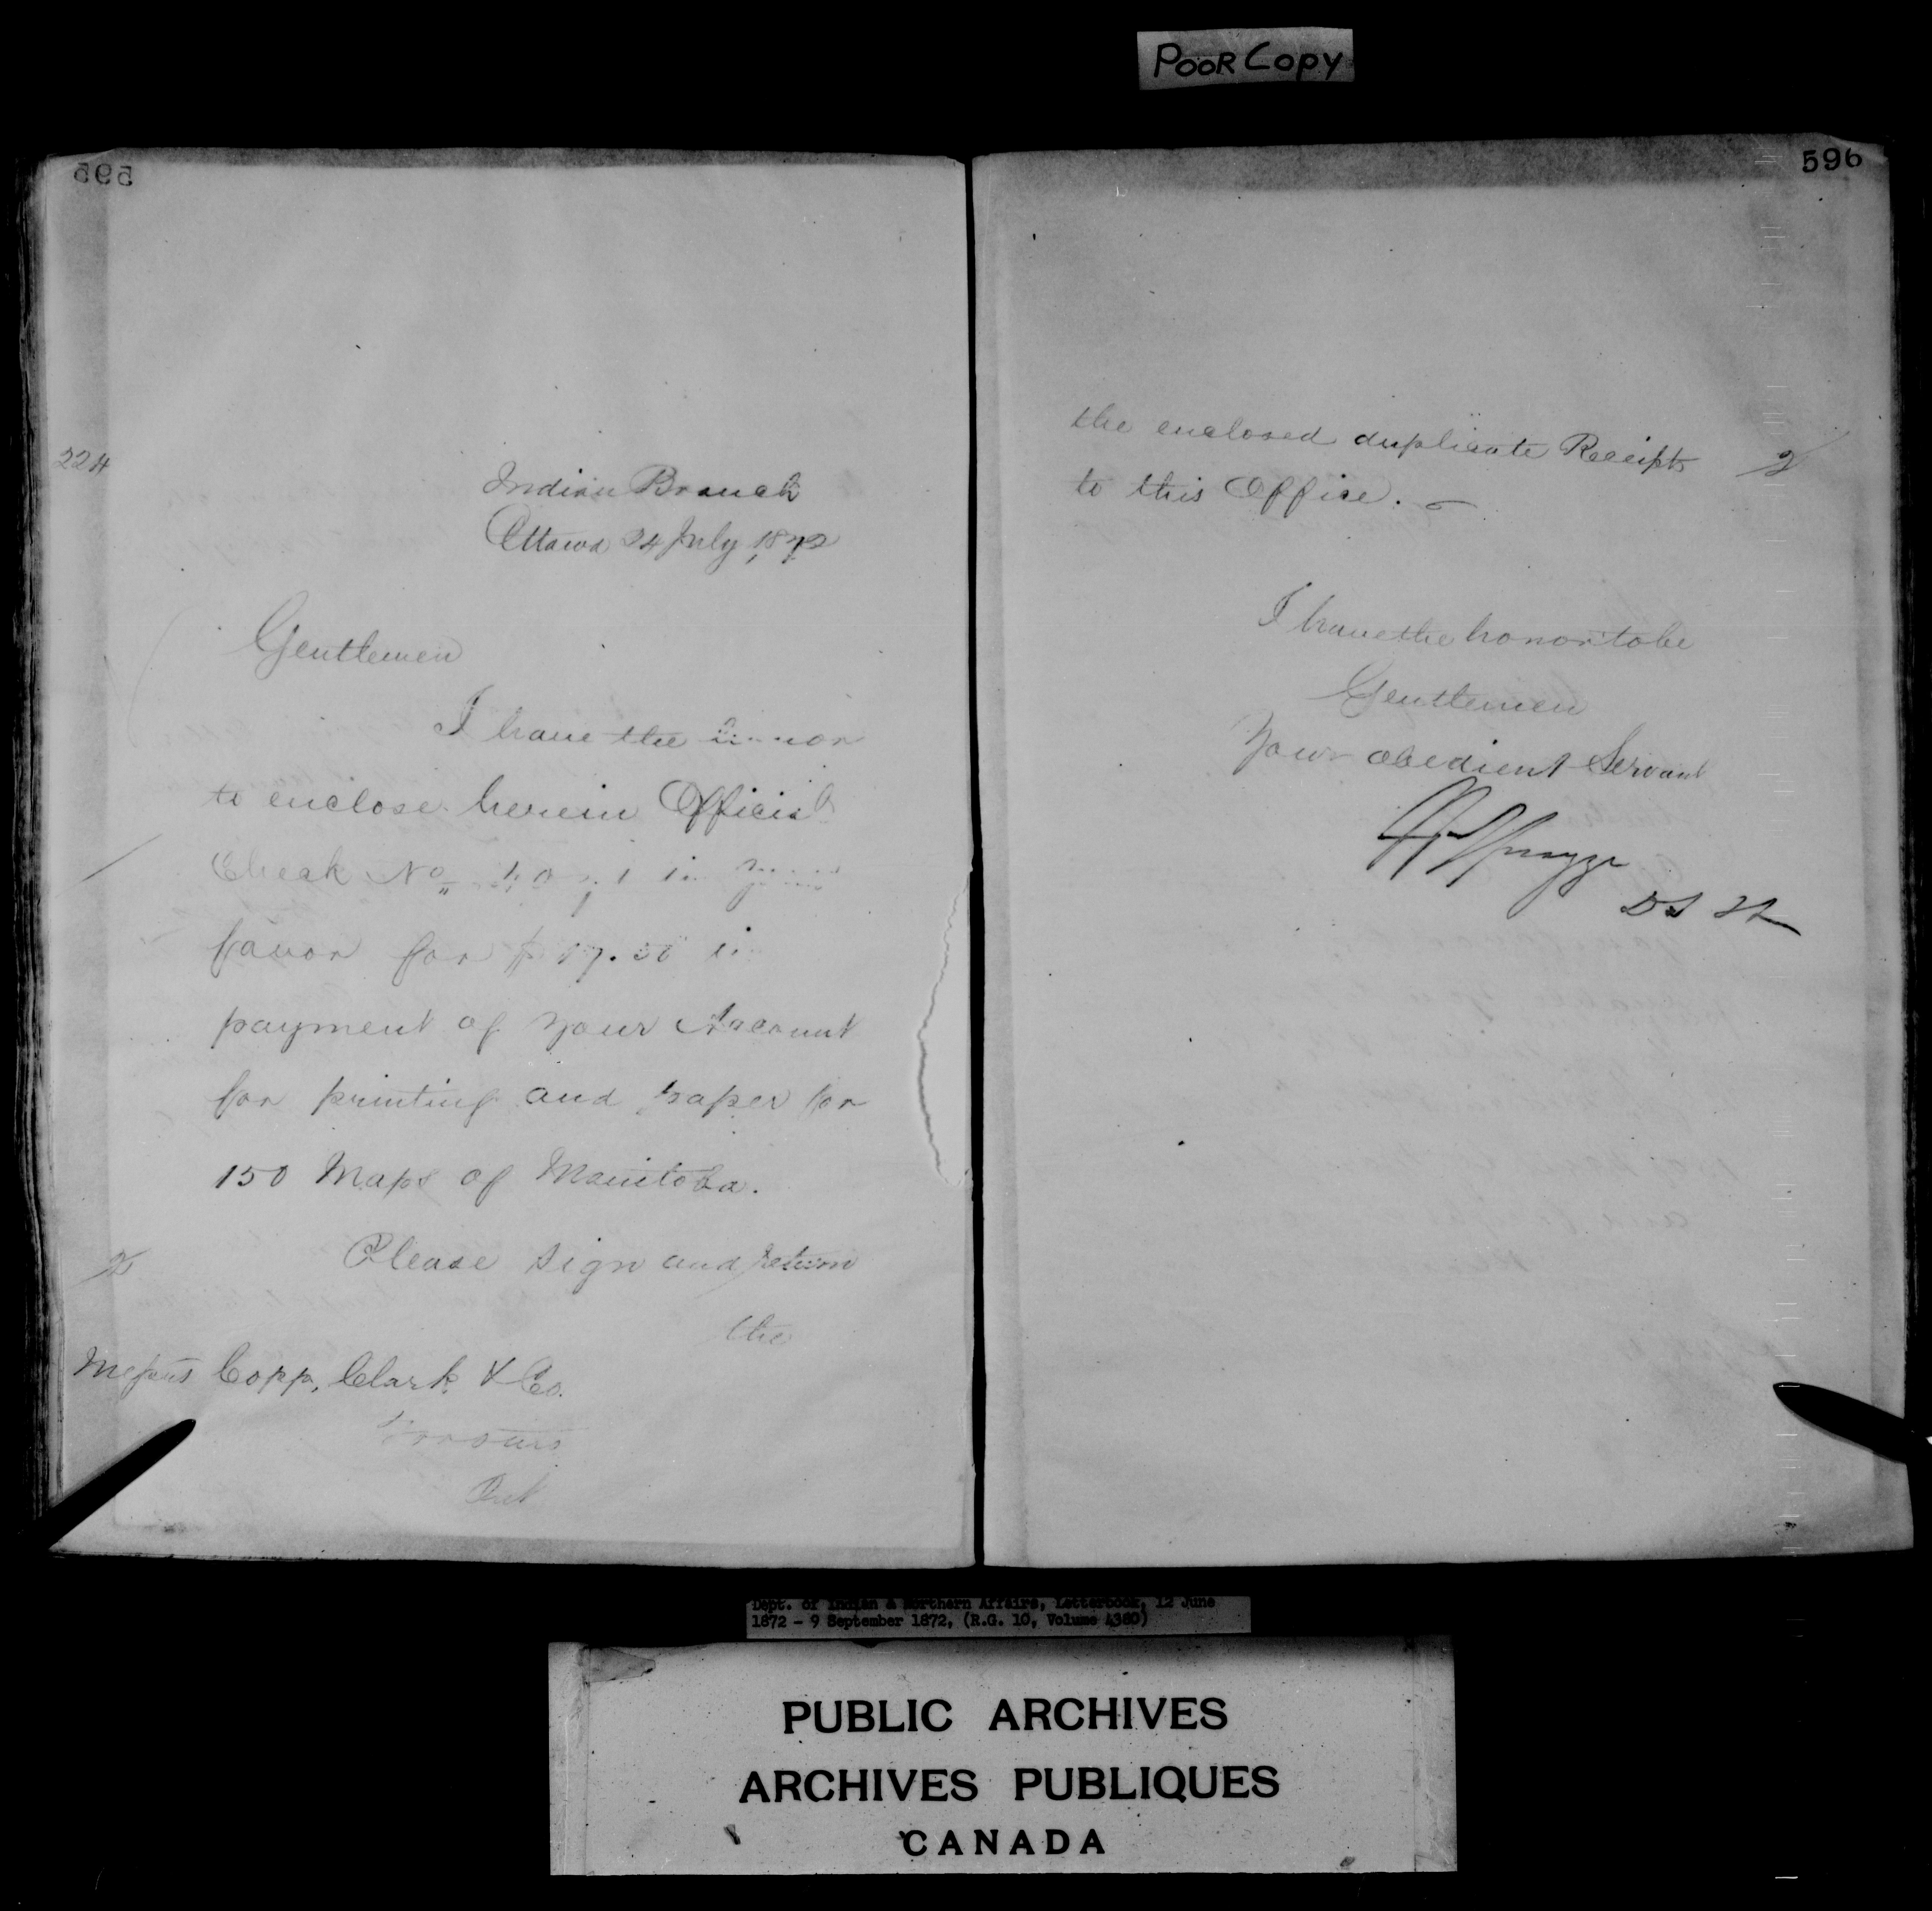 Poor Copy
595
224
Indian Branch
Ottawa 24 July 1872
Gentlemen
I have the honor
to enclose herein Official
Check No in your
favor for in
payment of your Account
for printing and paper for
150 Maps of Manitoba.
Please sign and return
the
Messrs Copp, Clark & Co.
Toronto
Ont
596
the enclosed duplicate Receipts
to this Office.
I have the honor to be
Gentlemen
Your obedient Servant
Spragge
Dept. of Indian & Northern Affairs, Letterbook, 12 June
1872 - 9 September 1872, (R.G. 10, Volume 4380)
PUBLIC ARCHIVES
ARCHIVES PUBLIQUES
CANADA